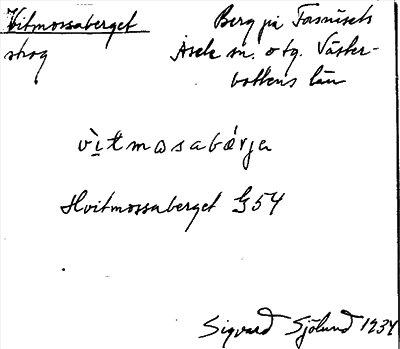 Vitmossaberget Berg på Tasnäsets
skog Åsele sn. o tg. Väster-
bottens län
vìtmosabárja
Hvitmossaberget G54
Sigvard Sjölund 1934